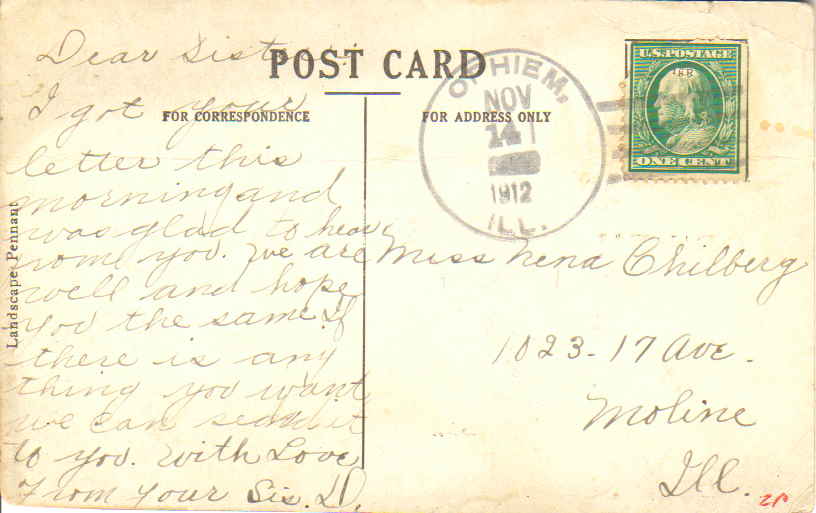 POST CARD
FOR CORRESPONDENCE
FOR ADDRESS ONLY
Landscape Pennant
Dear Sister
I got your
letter this
morning and
was glad to hear
from you. We are
well and hope
you the same. If
there is any
thing you want
we can send it
to you. With Love
From your Sis. D.
OPHIEM,
NOV
14
1912
ILL.
U.S. POSTAGE
ONE CENT
Miss Nena Chilberg
1023-17 Ave.
Moline
Ill.